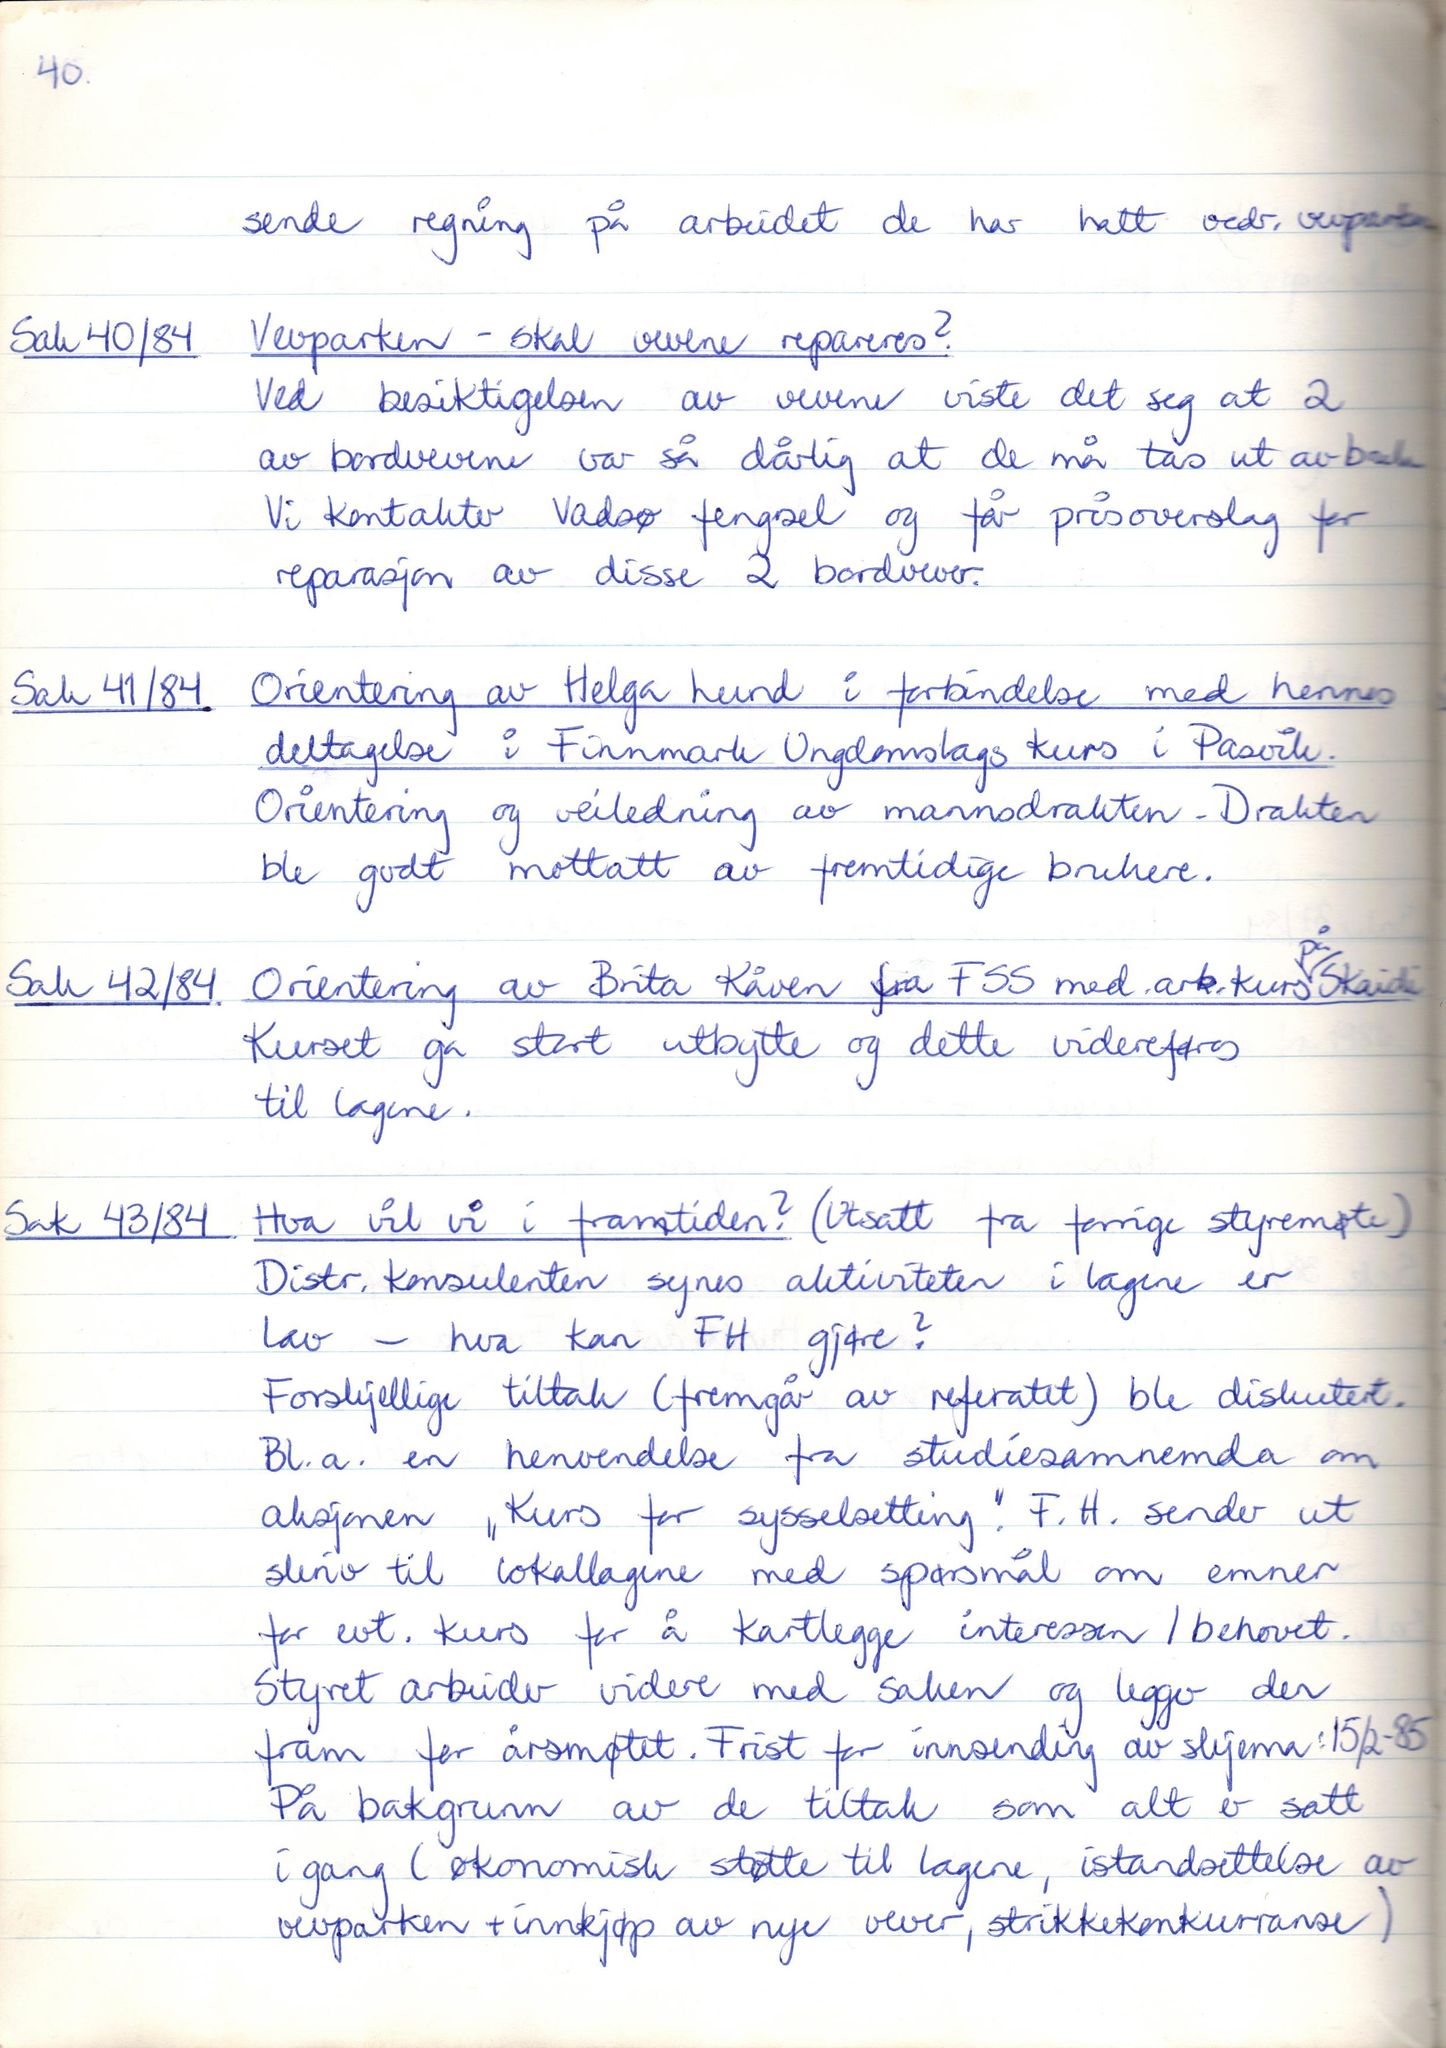 40.
sende regning på arbeidet de har hatt vedr. vevparken
Sak 40/84 Vevparken - skal vevene repareres?
Ved besiktigelsen av vevene viste det seg at 2
av bordvevene var så dårlig at de må tas ut av bruk
Vi kontakter Vadsø fengsel og får prisoverslag for
reparasjon av disse 2 bordvever.
Sak 41/84. Orientering av Helga Lund i forbindelse med hennes
deltagelse i Finnmark Ungdomslags kurs i Pasvik.
Orientering og veiledning av mannsdrakten - Drakten
ble godt mottatt av fremtidige brukere.
Sak 42/84. Orientering av Brita Kåven fra FSS med ark. kurs på Skaidi
Kurset ga stort utbytte og dette videreføres
til lagene.
Sak 43/84 Hva vil vi i framtiden? (Utsatt fra forrige styremøte)
Distr. konsulenten synes aktiviteten i lagene er
lav - hva kan FH gjøre?
Forskjellige tiltak (fremgår av referatet) ble diskutert.
Bl.a. en henvendelse fra studiesamnemda om
aksjonen „Kurs for sysselsetting". F.H. sender ut
skriv til lokallagene med spørsmål om emner
for evt. kurs for å kartlegge interessen / behovet.
Styret arbeider videre med saken og legger den
fram for årsmøtet. Frist for innsending av skjema: 15/2-85
På bakgrunn av de tiltak som alt er satt
i gang (økonomisk støtte til lagene, istandsettelse av
vevparken + innkjøp av nye vever, strikkekonkurranse)